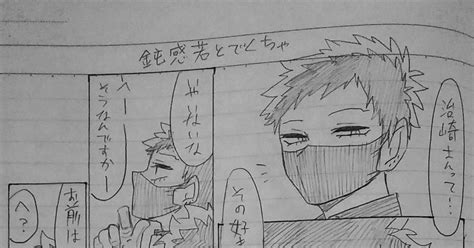 鈍感若とでくちゃ
治崎さんって!
その好
ゃないな
へーー
そうなんですかー
お前は
へ?